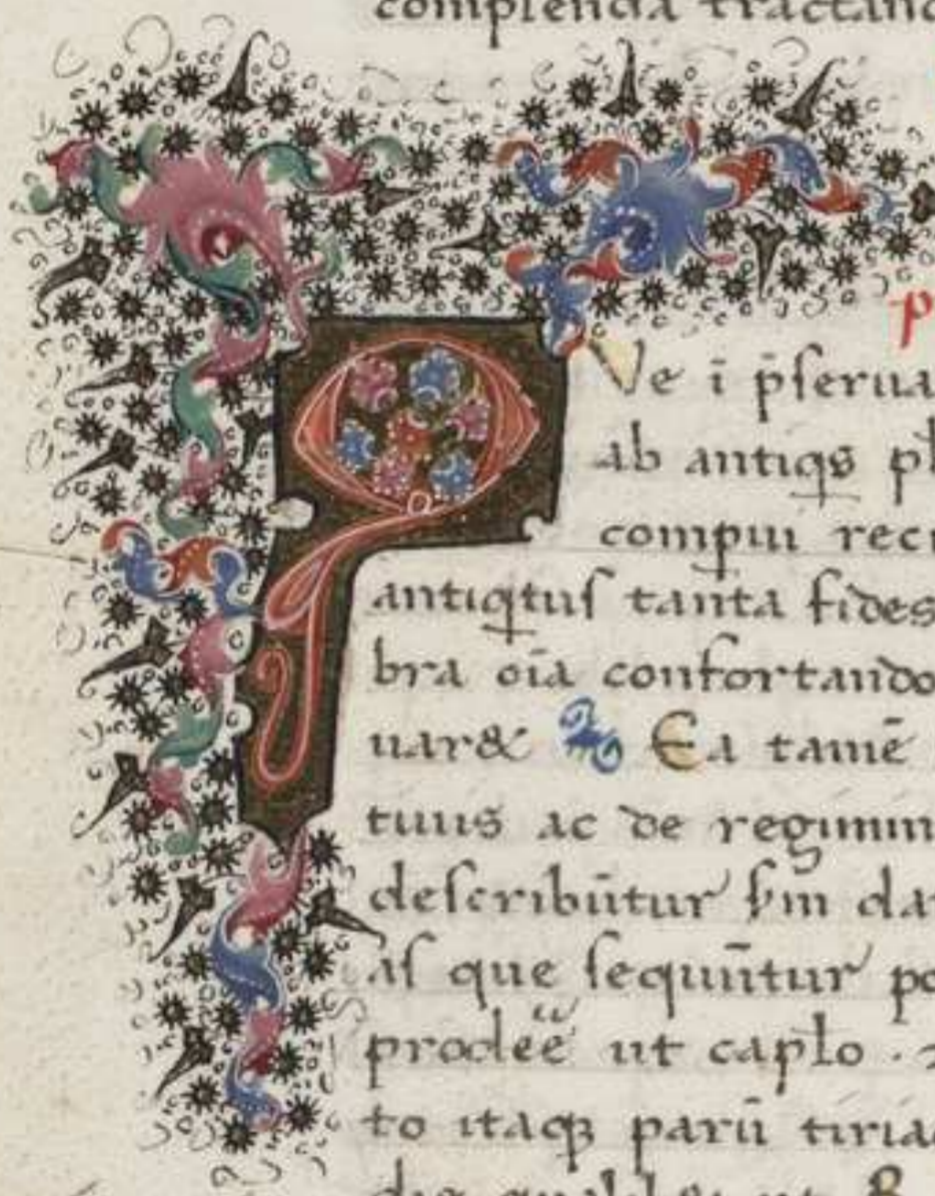 complenda tractand
p
QVe ī p̄ſerua
ab antiqs pl
compui rec
antiqtuſ tanta fides
bra oīa confortando
uar& Ea tamē
tuus ac de regimin
deſcribūtur ſm da
aſ que ſequūtur po
prodeē ut caplo . 2
to itaqꝫ parū tiria